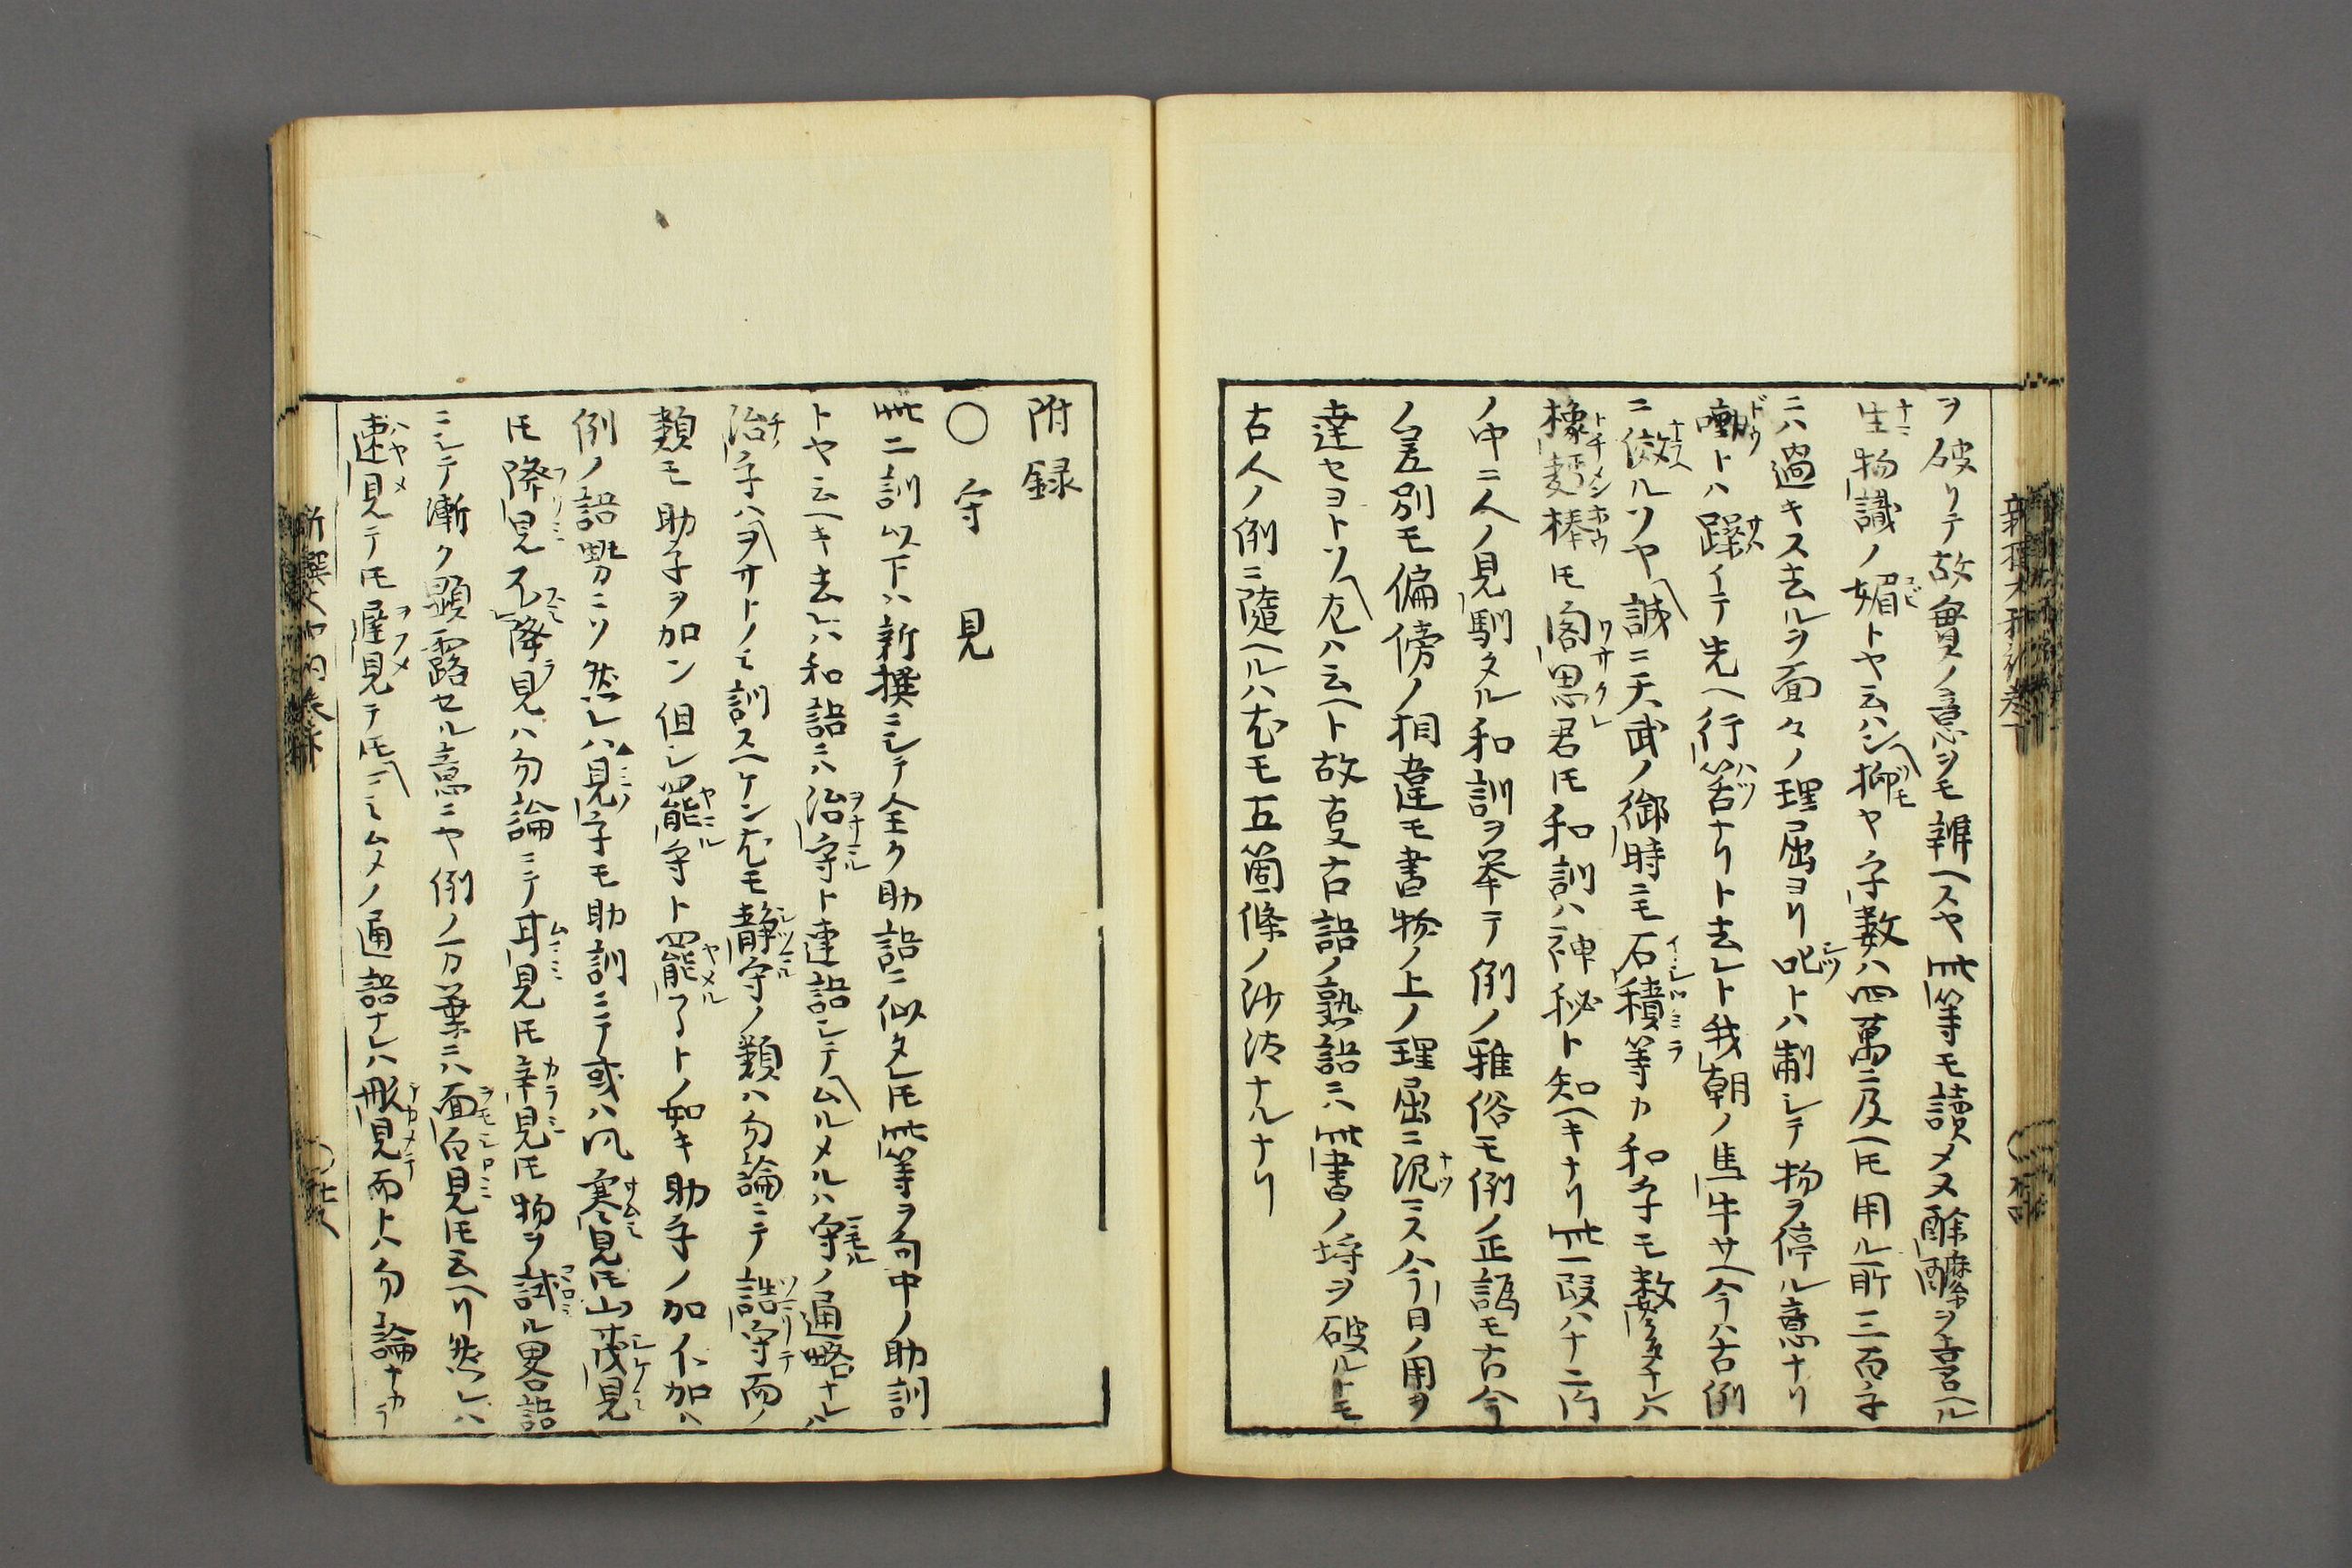 ヲ破リテ故實ノ意ヲモ辨ヘスヤ此等モ讀メヌ酴醿ヲ喜ヘル
生物識ノ媚トヤ云ハン抑ヤ字数ハ四萬ニ及ヘ𪜈用ル所三百字
ニハ過キス去ルヲ面々ノ理屈ヨリ叱トハ制シテ物ヲ停ル意ナリ
トハ躁イテ先ヘ行筈ナリト去レト我朝ノ馬牛サヘ今ハ古例
ニ傚ルソヤ誠ニ天武ノ御時ニモ石積等カ和字モ数多ナレハ
橡麪棒𪜈閣思君𪜈和訓ハ神秘ト知ヘキナリ此一段ハ十二門
ノ中ニ人ノ見馴タル和訓ヲ挙テ例ノ雅俗モ例ノ正譌モ古今
ノ差別モ偏傍ノ相違モ書物ノ上ノ理屈ニ泥ミス今日ノ用ヲ
達セヨトソ尤ハ云ヘト故事古語ノ熟語ニハ此書ノ埒ヲ破ルトモ
古人ノ例ニ隨ヘルハ尤モ五箇條ノ沙汰ナルナリ
附録
○守見
此二訓以下ハ新撰ニシテ全ク助語ニ似タレ𪜈此等ヲ句中ノ助訓
トヤ云ヘキ去レハ和語ニハ治守ト連語シテムルメルハ守ノ通略ナルハ
治字ハヲサトノミ訓スヘケン尤モ静守ノ類ハ勿論ニテ誥守而ノ
類モ助字ヲ加ン但シ罷守ト罷了トノ如キ助字ノ加不加ハ
例ノ語勢ニソ然レハ見字モ助訓ニテ或ハ風寒見𪜈山茂見
𪜈降見不降見ハ勿論ニテ甘見𪜈辛見𪜈物ヲ試ル畧語
ニシテ漸ク顕露セル意ニヤ例ノ万葉ニハ面白見𪜈云ヘリ然レハ
速見テ𪜈遅見テ𪜈ミムメノ通語ナレハ形見而トハ勿論ナカラ